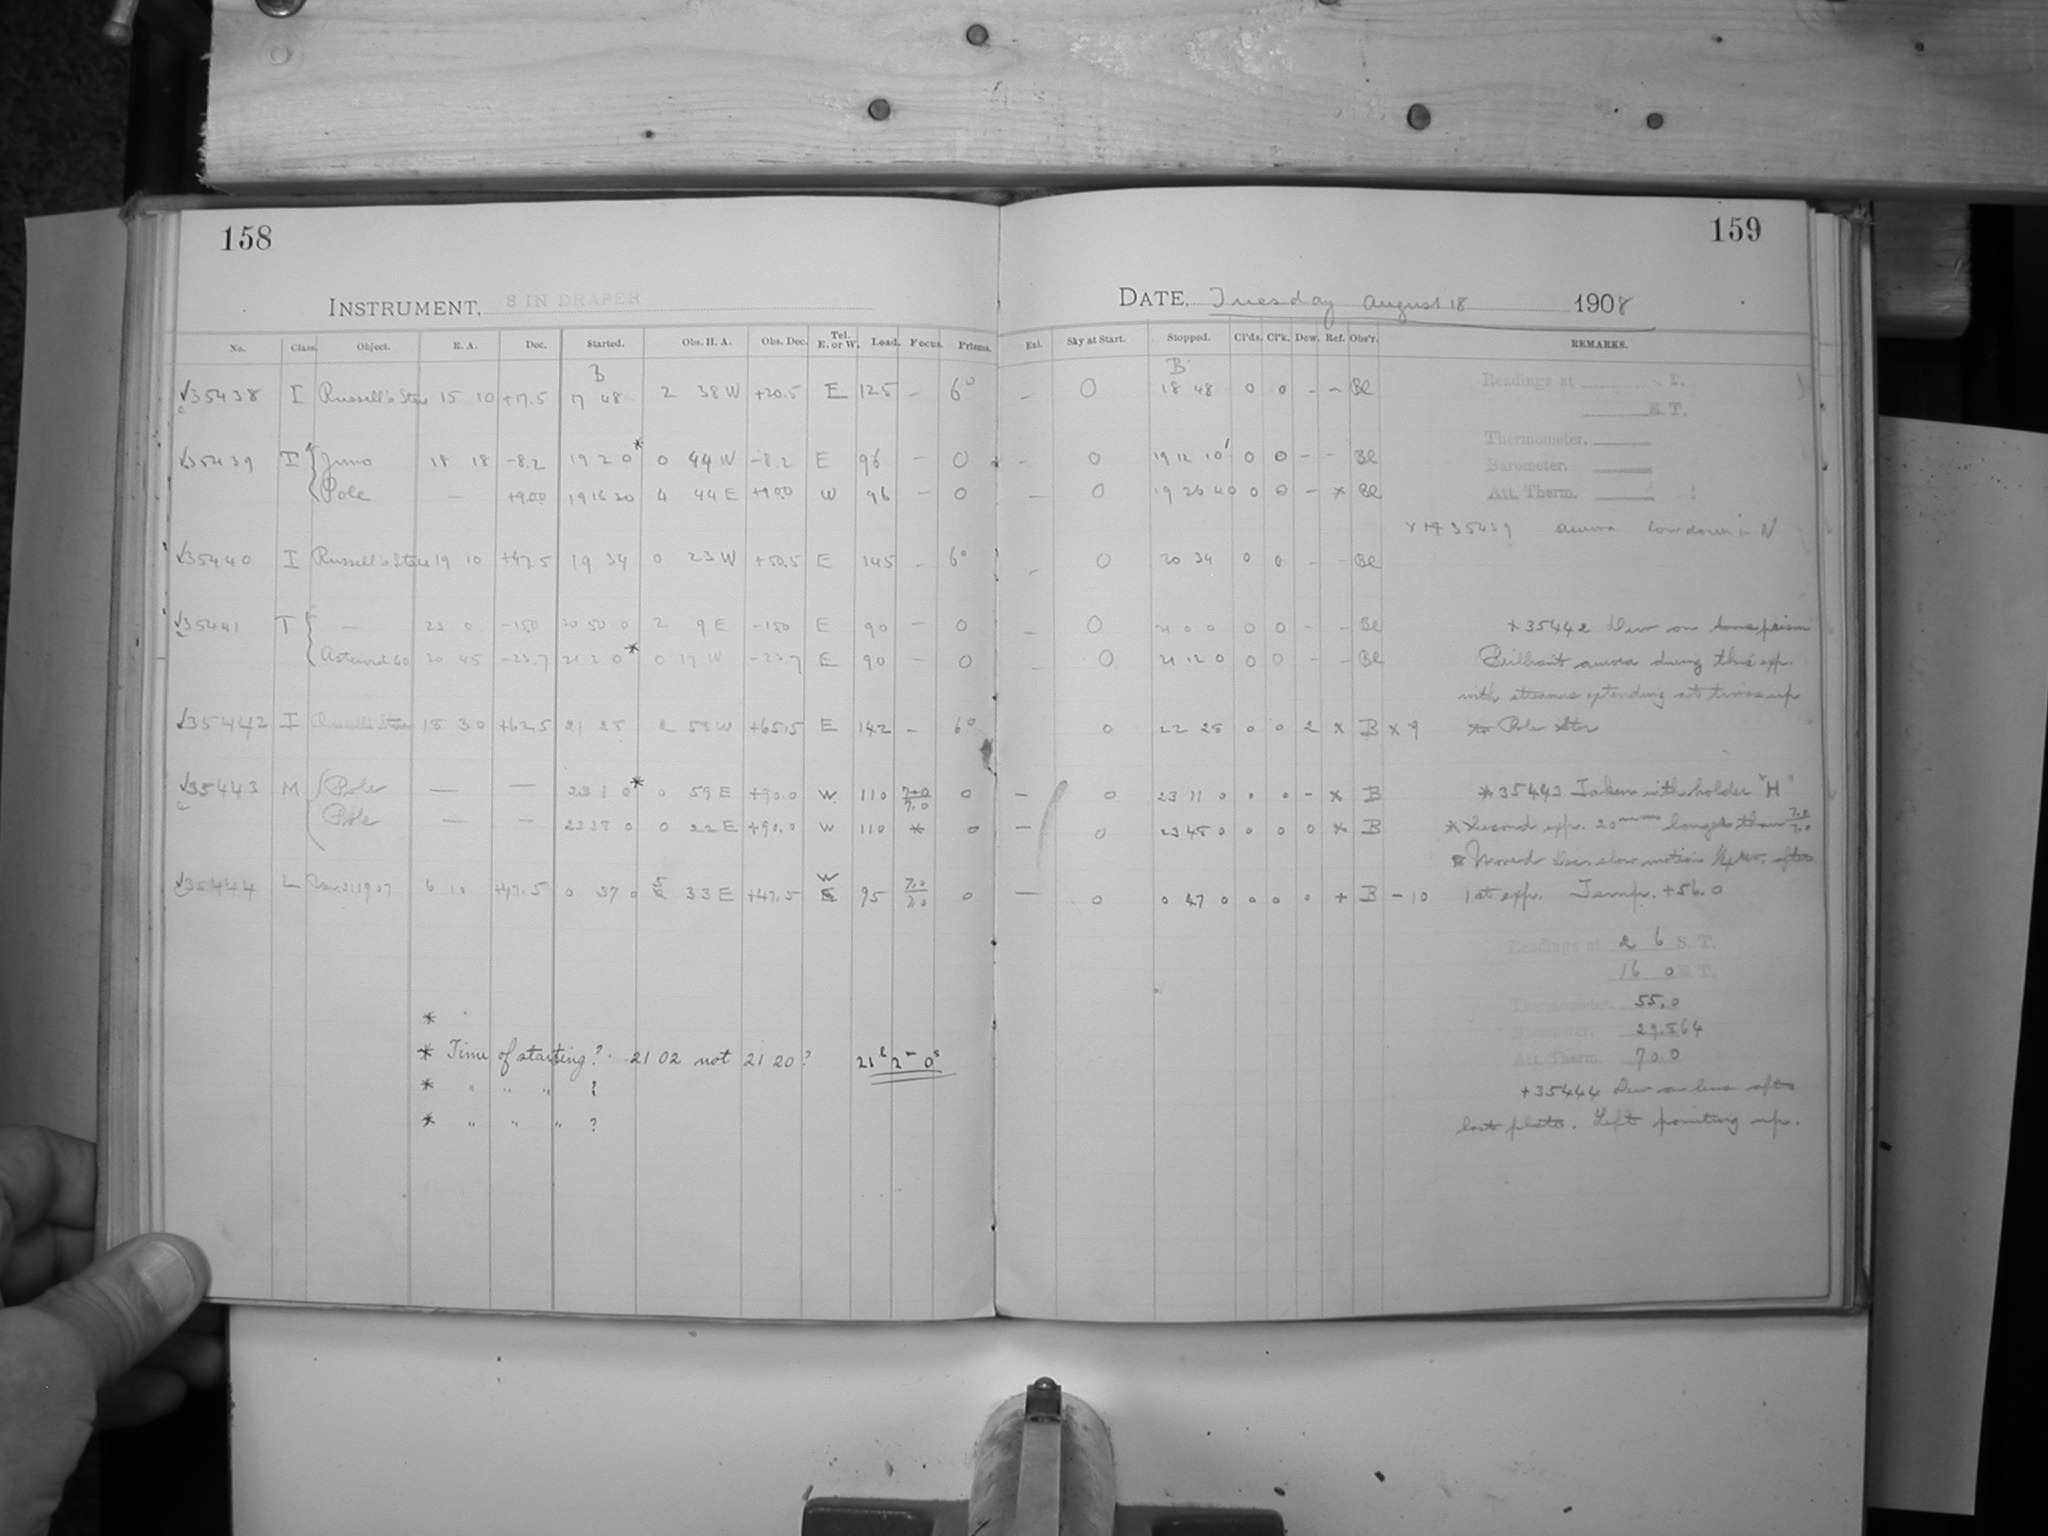 158
159
INSTRUMENT, 8 IN DRAPER
DATE, Tuesday August 18 1908
No. Class. Object. R. A. Dec. Started. Obs. H. A. Obs. Dec. Tel. E. or W. Load. Focus. Prisms. Exl. Sky at Start. Stopped. Cl'ds. Cl'k. Dew. Ref. Obs'r. REMARKS.
B B
√35438 I Russell's Stars 15 10 +17.5 17 48 2 38 W +20.5 E 125 - 6° - 0 18 48 0 0 - - Bl
Readings at S. T.
E. T.
Thermometer.
Barometer.
Att. Therm.
√35439 I { Juno 18 18 -8.2 19 2 0* 0 44 W -8.2 E 96 - 0 - 0 19 12 10 0 0 - - Bl
Pole - +90.0 19 16 30 4 44 E +90.0 W 96 - 0 - 0 19 26 40 0 0 - x Bl
35439 aurora low down in N
√35440 I Russell's Stars 19 10 +47.5 19 34 0 23 W +50.5 E 145 - 6° - 0 20 34 0 0 - - Bl
√35441 I { - 23 0 -15.0 20 50 0 2 9 E -15.0 E 90 - 0 - 0 21 0 0 0 0 - - Bl
+35442 Dew on lens prism
Asteroid 60 20 45 -23.7 21 2 0* 0 17 W -23.7 E 90 - 0 - 0 21 12 0 0 0 - - Bl
Brilliant aurora during this exp.
with streamers extending at times up
√35442 I Russell's Stars 18 30 +62.5 21 28 2 58 W +65.5 E 142 - 6° 0 22 28 0 0 2 x B x 9
to Pole Star
√35443 M { Pole - - 23 1 0* 0 59 E +90.0 W 110 7.0/7.0 0 - 0 23 11 0 . . - x B
* 35443 Taken with holder "H"
Pole - - 23 38 0 0 22 E +90.0 W 110 * 0 - 0 23 48 0 0 0 0 x B
* Second exp. 20 longer than 7.0/7.0
Moved Dec. slow motion after
√35444 L 6 10 +47.5 0 37 0 5 33 E +47.5 W 95 7.0/7.0 0 - 0 0 47 0 0 0 0 + B - 10
1st exp. Temp. +56.0
Readings at 2 6 S. T.
16 0 E. T.
Thermometer. 55.0
Barometer. 29.564
Att. Therm. 70.0
+35444 Dew on lens after
last plate. Left pointing up.
*
* Time of starting? 21 02 not 21 20? 21h 2m 0s
* " " " ?
* " " " ?